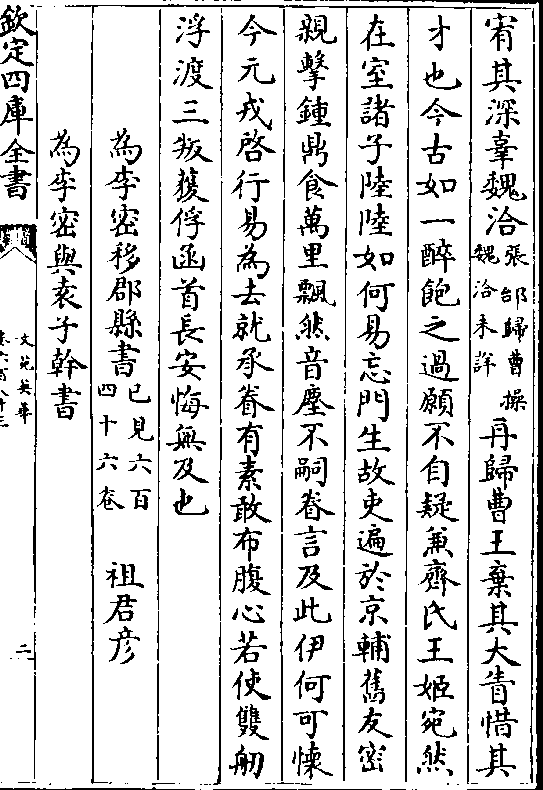 宥其深辜魏洽張郃歸曹操魏洽未詳再歸曹王棄其大眚惜其
才也今古如一醉飽之過願不自疑兼齊氏王姬宛然
在室諸子陸陸如何易忘門生故吏遍於京輔舊友密
親擊鍾鼎食萬里飄然音塵不嗣眷言及此伊何可懷
今元戎啓行易為去就承眷有素敢布腹心若使雙舠
浮渡三叛獲俘函首長安悔無及也
為李密移郡縣書已見六百四十六卷 祖君彦
為李密與袁子幹書
欽定四庫全書
文苑英華
二